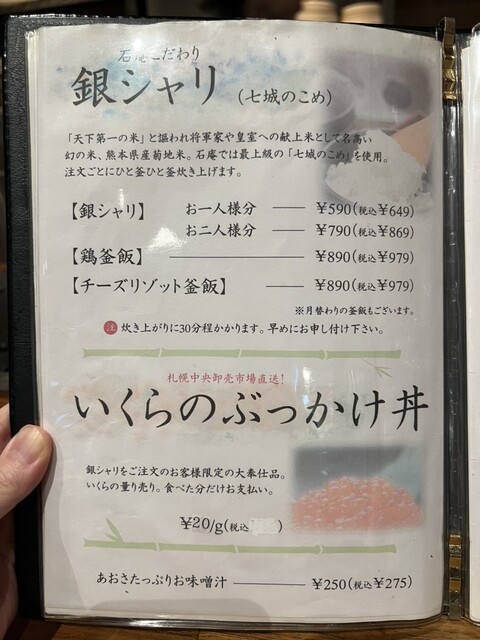 石庵こだわり
銀シャリ (七城のこめ)
「天下第一の米」と謳われ将軍家や皇室への献上米として名高い
幻の米、熊本県産菊地米。石庵では最上級の「七城のこめ」を使用。
注文ごとにひと釜ひと釜炊き上げます。
【銀シャリ】 お一人様分 ¥590(税込¥649)
お二人様分 ¥790(税込¥869)
【鶏釜飯】 ¥890(税込¥979)
【チーズリゾット釜飯】 ¥890(税込¥979)
※月替わりの釜飯もございます。
注 炊き上がりに30分程かかります。早めにお申し付け下さい。
札幌中央卸売市場直送!
いくらのぶっかけ丼
銀シャリをご注文のお客様限定の大奉仕品。
いくらの量り売り。食べた分だけお支払い。
¥20/g(税込 )
あおさたっぷりお味噌汁 ¥250(税込¥275)